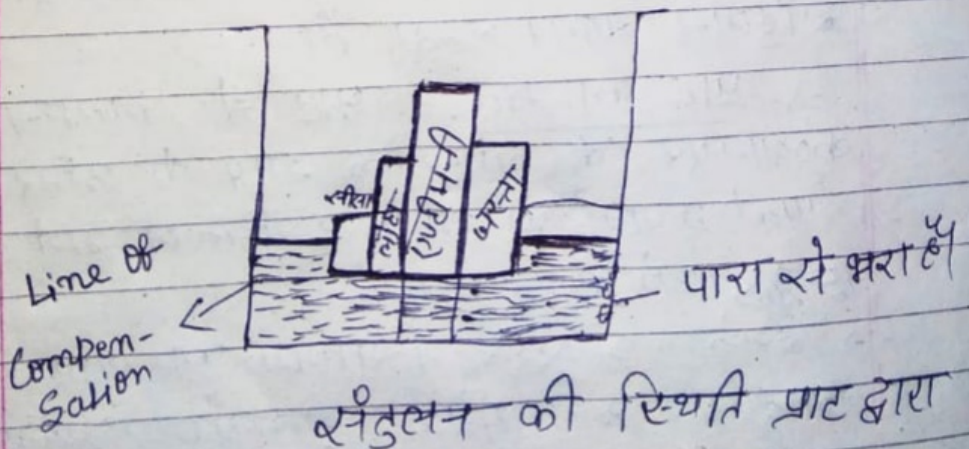 सीसा
लोहा
एण्टीमनी
जस्ता
Line of
Compen-
sation
पारा से भरा है
संतुलन की स्थिति प्राट द्वारा